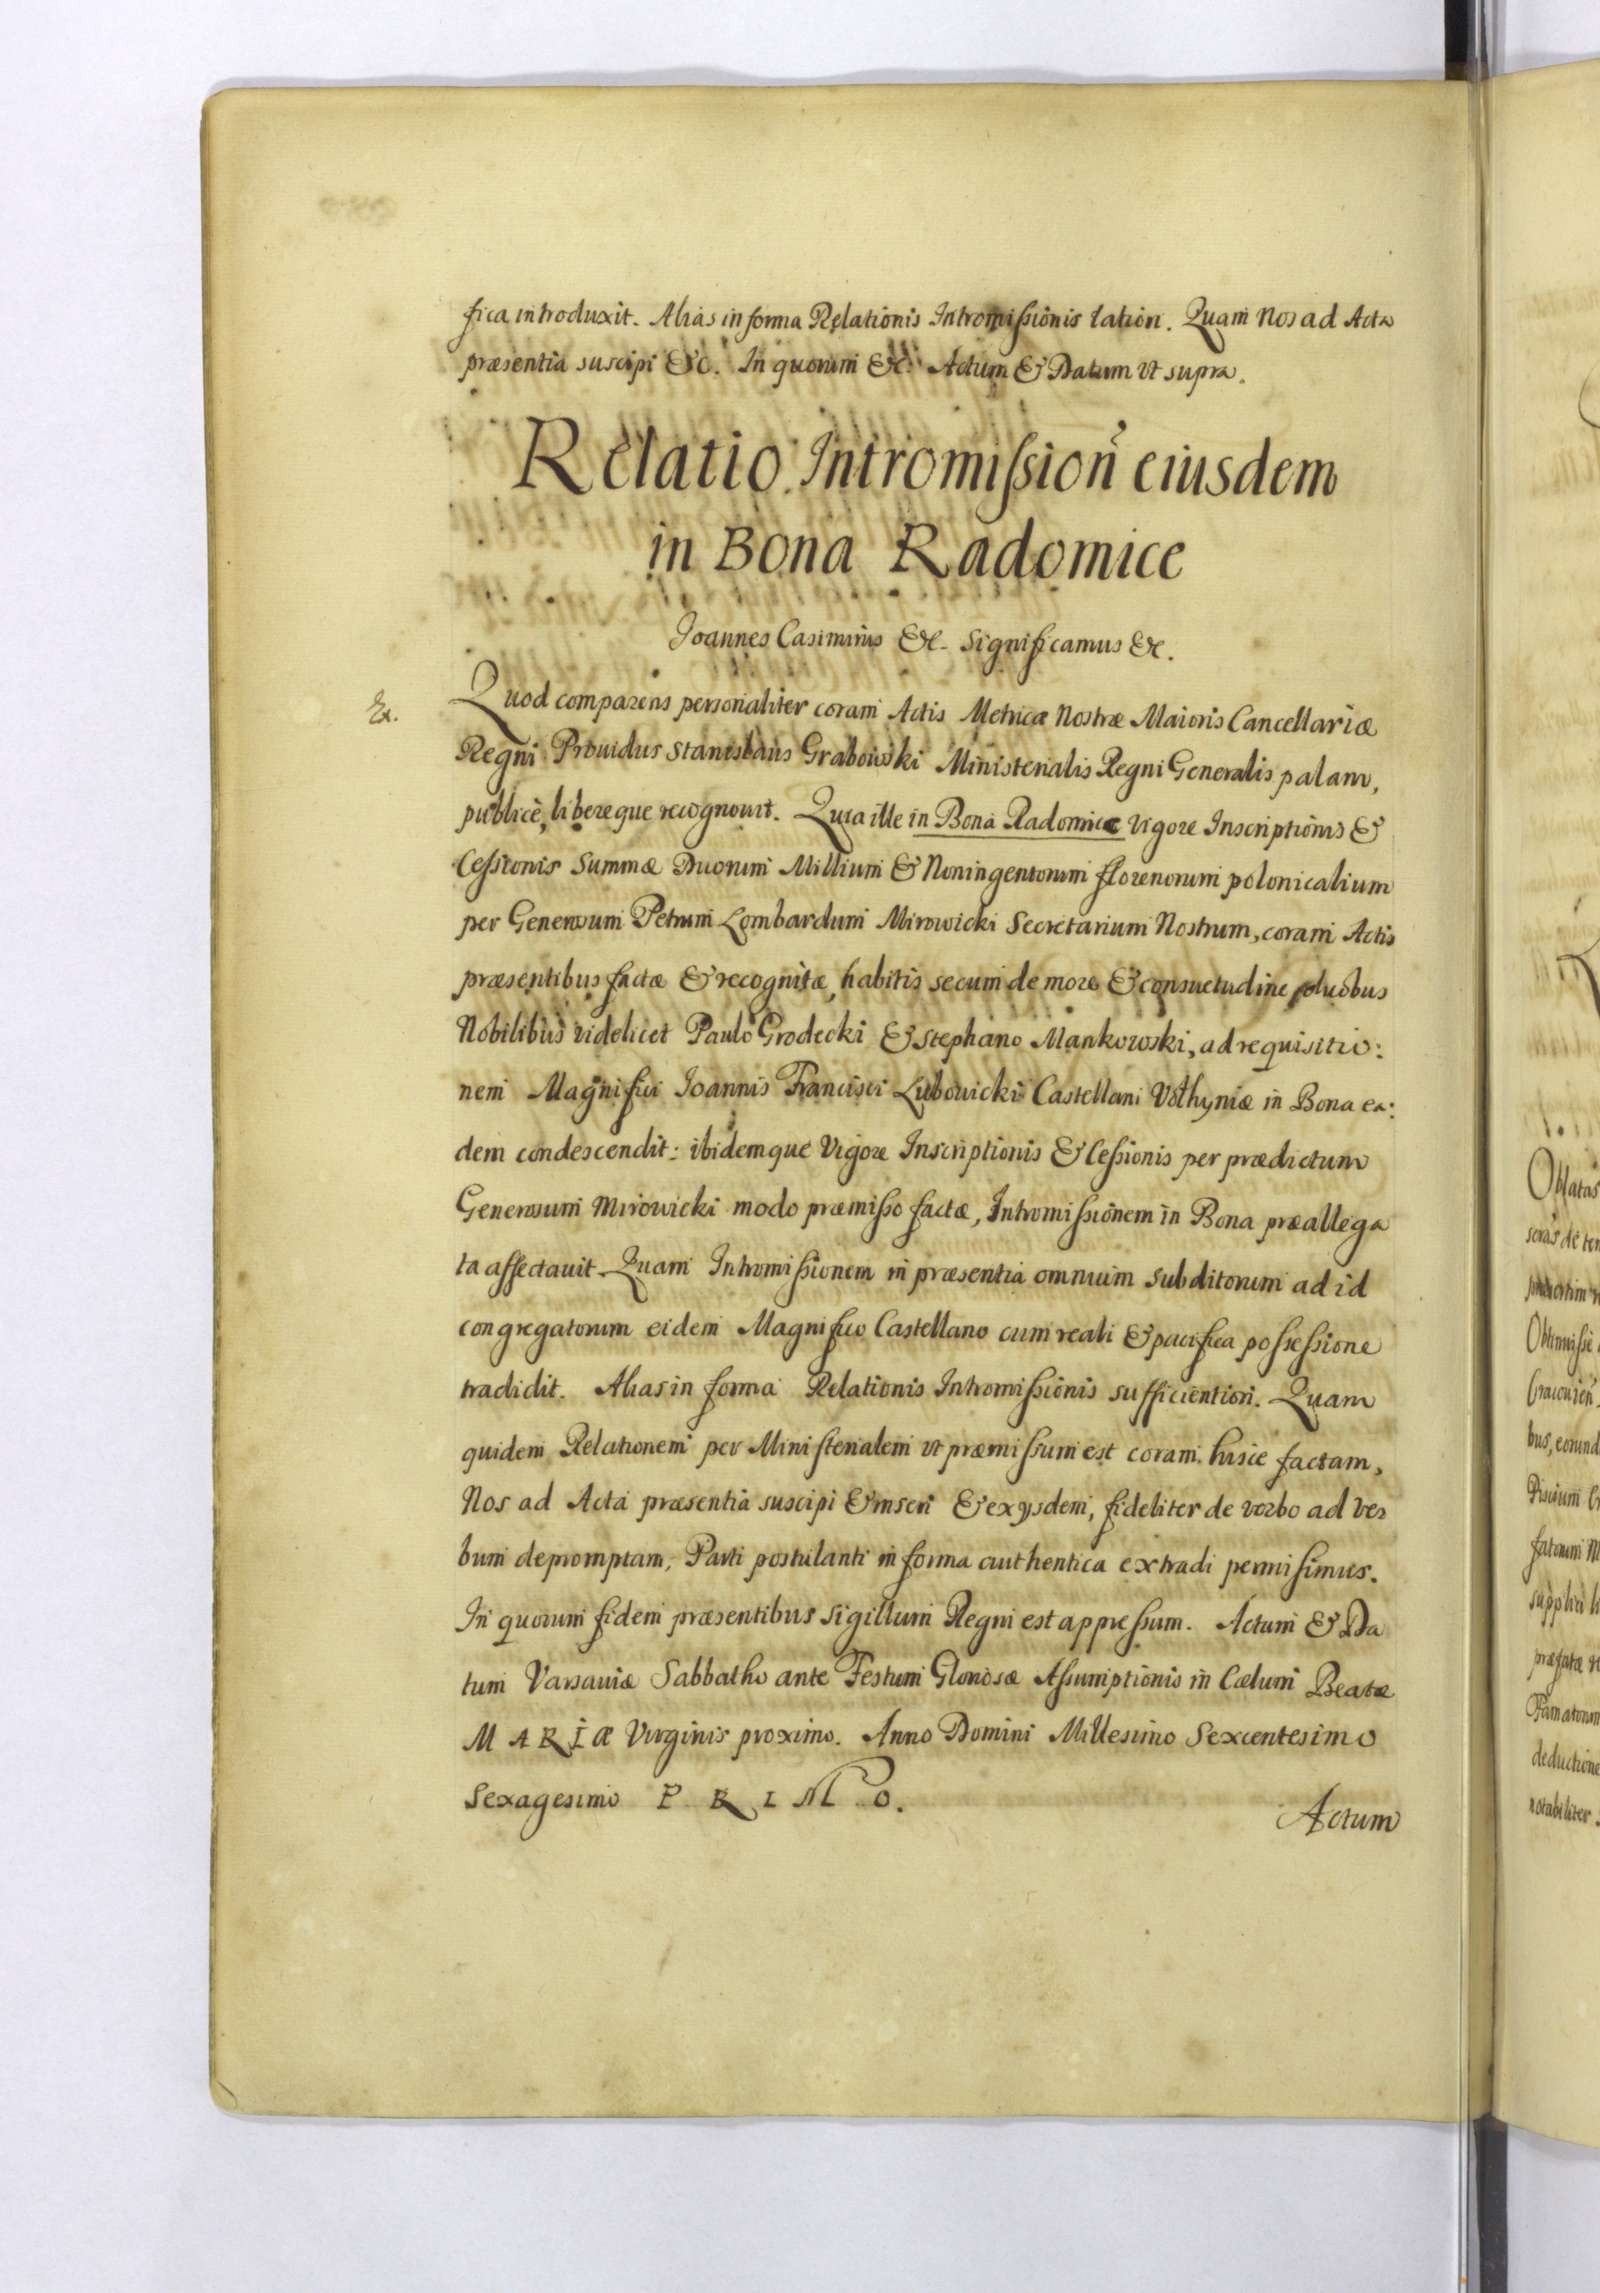 fica introduxit. Alias in forma Relationis Intromissionis lation. Quam Nos ad Acta
præsentia suscipi &c. In quorum &c. Actum & Datum vt supra.
Relatio Intromission eiusdem
in Bona Radomice
Joannes Casimirus &c. Significamus &c.
Ex.
Quod comparens personaliter coram Actis Metricæ Nostræ Maioris Cancellariæ
Regni Prouidus Stanislaus Grabowski Ministerialis Regni Generalis palam,
publicè, libereque recognouit. Quia ille in Bona Radomice vigore Inscriptionis &
Cessionis Summæ Duorum Millium & Noningentorum florenorum polonicalium
per Generosum Petrum Lombardum Mirowicki Secretarium Nostrum, coram Actis
præsentibus factæ & recognitæ, habitis secum de more & consuetudine, duobus
Nobilibus videlicet Paulo Grodecki & Stephano Mankowski, ad requisitio:
nem Magnifici Joannis Francisci Lubowicki Castellani Volhyniæ in Bona ea:
dem condescendit: ibidemque vigore Inscriptionis & Cessionis per prædictum
Generosum Mirowicki modo præmisso factæ, Intromissionem in Bona præallega
ta affectauit. Quam Intromissionem in præsentia omnium subditorum ad id
congregatorum eidem Magnifico Castellano cum reali & pacifica possessione
tradidit. Alias in forma Relationis Intromissionis sufficientiori. Quam
quidem Relationem per Ministerialem vt præmissum est coram hisce factam,
Nos ad Acta præsentia suscipi & inscri & ex ijsdem, fideliter de verbo ad ver
bum depromptam, Parti postulanti in forma authentica extradi permisimus.
In quorum fidem præsentibus Sigillum Regni est appressum. Actum & Da
tum Varsauiæ Sabbatho ante Festum Gloriosæ Assumptionis in Cælum Beatæ
MARIÆ Virginis proximo. Anno Domini Millesimo Sexcentesimo
Sexagesimo PRIMO.
Actum